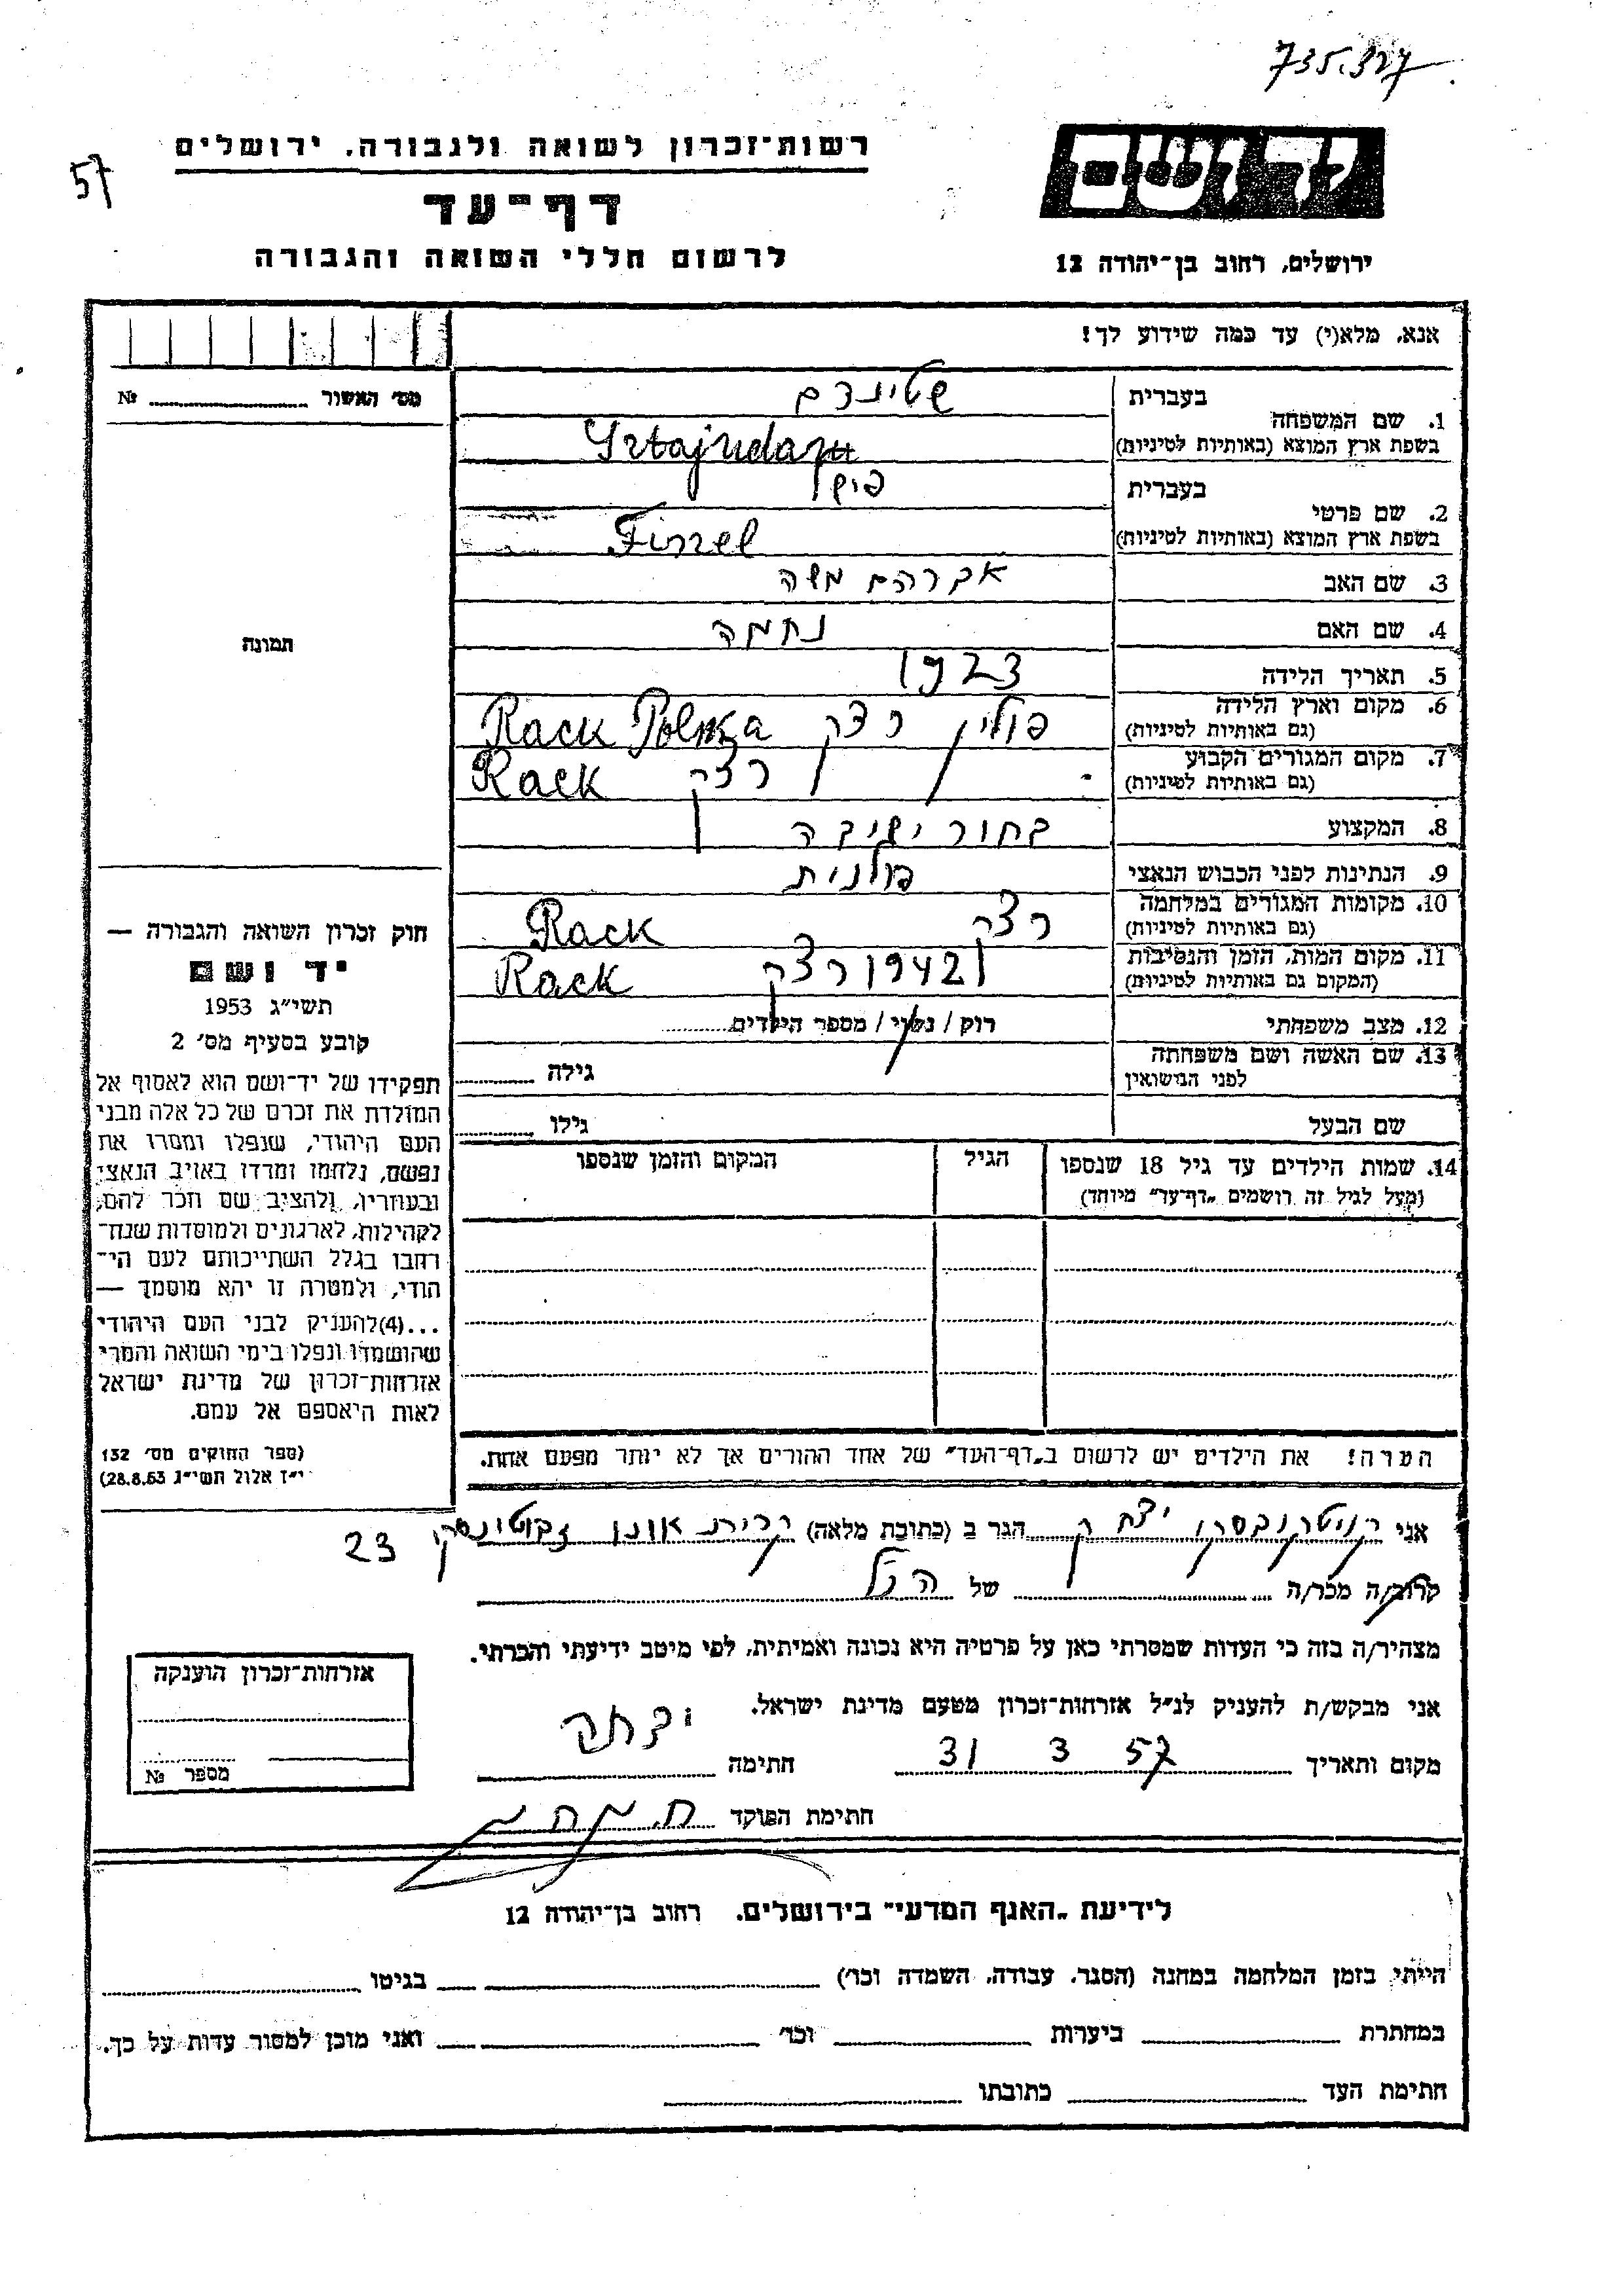 735.327
רשות־זכרון לשואה ולגבורה. ירושלים
57
דף־עד
לרשום חללי השואה והגבורה
יד ושם
ירושלים, רחוב בן־יהודה 12
אנא, מלא(י) עד כמה שידוע לך!
מס׳ האשור № 
1. שם המשפחה
בעברית
שטינדם
בשפת ארץ המוצא (באותיות לטיניות)
2. שם פרטי
בעברית
פישל
בשפת ארץ המוצא (באותיות לטיניות)
Fiszel
3. שם האב
אברהם משה
4. שם האם
נחמה
5. תאריך הלידה
1923
6. מקום וארץ הלידה
(גם באותיות לטיניות)
פולין רצק Rack Polska
7. מקום המגורים הקבוע
(גם באותיות לטיניות)
רצק Rack
8. המקצוע
בחור ישיבה
9. הנתינות לפני הכבוש הנאצי
פולנית
10. מקומות המגורים במלחמה
(גם באותיות לטיניות)
רצק Rack
11. מקום המות, הזמן והנסיבות
(המקום גם באותיות לטיניות)
1942 רצק Rack
12. מצב משפחתי
רוק / נשוי / מספר הילדים
13. שם האשה ושם משפחתה
לפני הנישואין
גילה
שם הבעל
גילו
14. שמות הילדים עד גיל 18 שנספו
(מעל לגיל זה רושמים „דף־עד״ מיוחד)
הגיל
המקום והזמן שנספו
הערה! את הילדים יש לרשום ב„דף־העד״ של אחד ההורים אך לא יותר מפעם אחת.
תמונה
חוק זכרון השואה והגבורה —
יד ושם
תשי״ג 1953
קובע בסעיף מס׳ 2
תפקידו של יד־ושם הוא לאסוף אל
המולדת את זכרם של כל אלה מבני
העם היהודי, שנפלו ומסרו את
נפשם, נלחמו ומרדו באויב הנאצי
ובעוזריו, ולהציב שם וזכר להם,
לקהילות, לארגונים ולמוסדות שנח־
רחבו בגלל השתייכותם לעם הי־
הודי, ולמטרה זו יהא מוסמך —
...(4)להעניק לבני העם היהודי
שהושמדו ונפלו בימי השואה והמרי
אזרחות־זכרון של מדינת ישראל
לאות היאספם אל עמם.
(ספר החוקים מס׳ 132
י״ז אלול תשי״ג 28.8.53)
אני קויטקובסקי יצחק הגר ב (כתובת מלאה) קרית אונו זבוטינסקי 23
קרוב/ה מכר/ה של הנ״ל
מצהיר/ה בזה כי העדות שמסרתי כאן על פרטיה היא נכונה ואמיתית, לפי מיטב ידיעתי והכרתי.
אני מבקש/ת להעניק לנ״ל אזרחות־זכרון מטעם מדינת ישראל.
מקום ותאריך 31 3 57 חתימה יצחק
חתימת הפוקד
אזרחות־זכרון הוענקה
מספר №
לידיעת „האגף המדעי״ בירושלים. רחוב בן־יהודה 12
הייתי בזמן המלחמה במחנה (הסגר, עבודה, השמדה וכו׳) בגיטו
במחתרת ביערות וכו׳ ואני מוכן למסור עדות על כך.
חתימת העד כתובתו